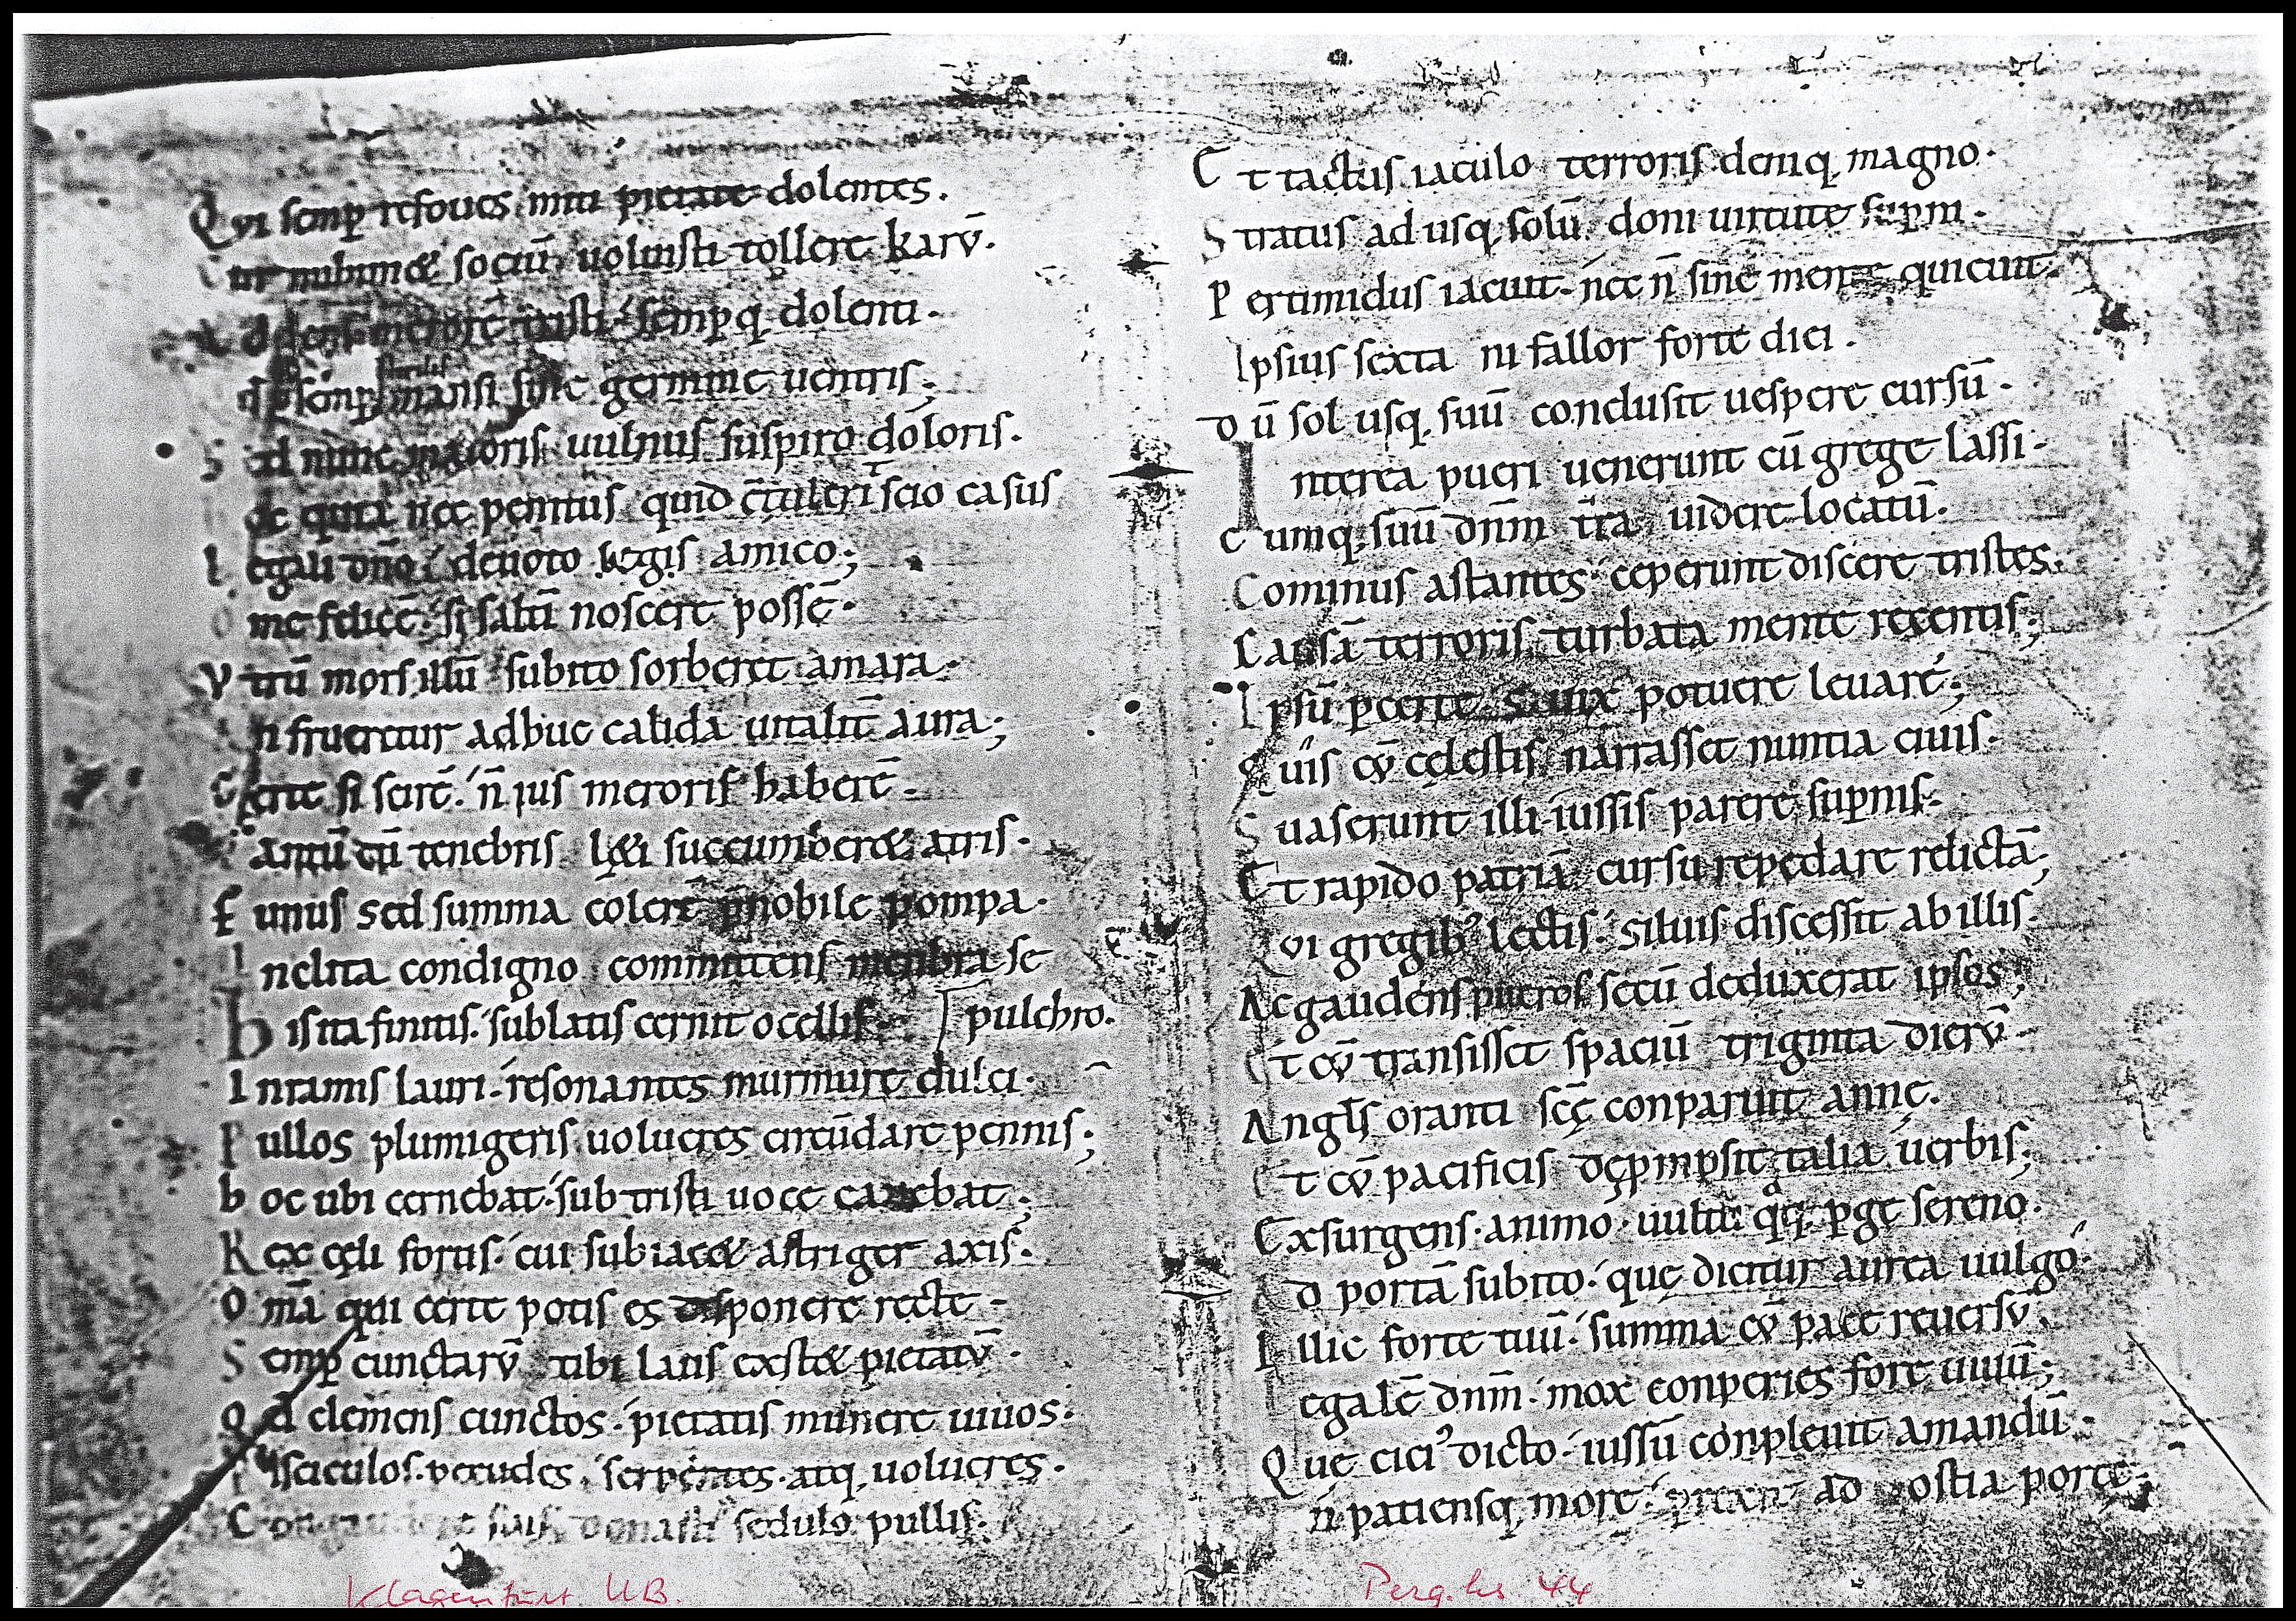 Qui semꝑ refoues miti pietate dolentes.
Cur mihimet sociū uoluisti tollere karū.
Addens merorē tristi semꝑq; dolenti.
sterilis
q semꝑ mansi sine germine uentris;
Sed nunc maioris uulnus suspiro doloris.
nec penitus quid c̄tulerī scio casus
Legali dn̄o deuoto legis amico;
O me felicē si saltī noscere possē.
Vtrū mors illū subito sorberet amara.
An frueretur adhuc calida uitalit̄ aura;
Certe si scirē. n̄ ius meroris haberē.
Tantū cū tenebris leti succumberet atris.
Funus sed summa colerē p̄nobile pompa.
Inclita condigno committens membra se
His ita finitis. sublatis cernit ocellis. pulchro.
In ramis lauri. resonantes murmure dulci.
Pullos plumigeris uolucres circūdare pennis;
hoc ubi cernebat. sub tristi uoce canebat;
Rex cęli fortis. cui subiacet astriger axis.
Om̄a qui certe potis es disponere recte.
Semꝑ cunctarū tibi laus exstet pietatū.
Qd clemens cunctos. pietatis munere uiuos.
Pisciculos. pecudes. serpentes. atq; uolucres.
suis donasti sedulo pullis.
Et tactus iaculo terroris deniq; magno.
Stratus ad usq; solū doni uirtute suꝑni.
Pertimidus iacuit. nec n̄ sine mente quieuit.
Ipsius sexta ni fallor forte diei.
Dū sol usq; suū conclusit uespere cursū.
Interea pueri uenerunt cū grege lassi.
Cumq; suū dn̄m t̄ra uidere locatū.
Cominus astantes ceperunt discere tristes.
Causā terroris turbata mente recentis;
Ipsū ꝑcerte uix potuere leuare;
Quis cū cęlestis narrasset nuntia ciuis.
Suaserunt illi iussis parere suꝑnis.
Et rapido patriā cursu repedare relictā;
Qui gregib᾽ lectis. siluis discessit ab illis.
Ac gaudens pueros secū deduxerat ipsos;
Et cū transisset spaciū triginta dierū.
Angl̄s oranti scę conparuit anne.
Et cū pacificis talia uerbis;
Exsurgens. animo. ꝑge sereno.
Ad portā subito. quę dicitur aurea uulgo.
Illic forte tuū. summa cū pace reuersū.
Legalē dn̄m. mox conperies fore uiuū;
Quę citi᾽ dicto. iussū conpleuit amandū.
n̄ patiensq; morę ad ostia portę;
Klagenfurt UB.
Perg. hs. 44